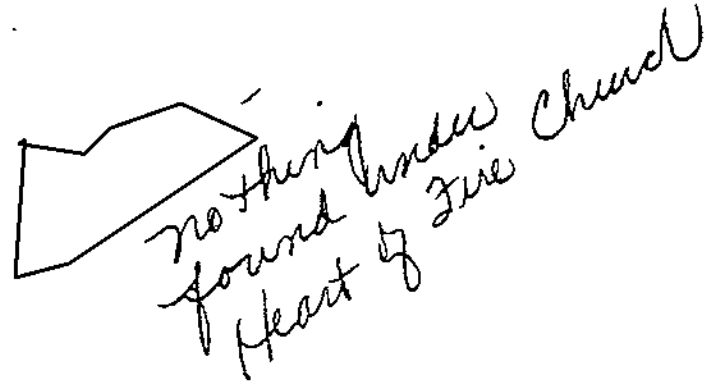 nothing
found under
Heart of Fire Church